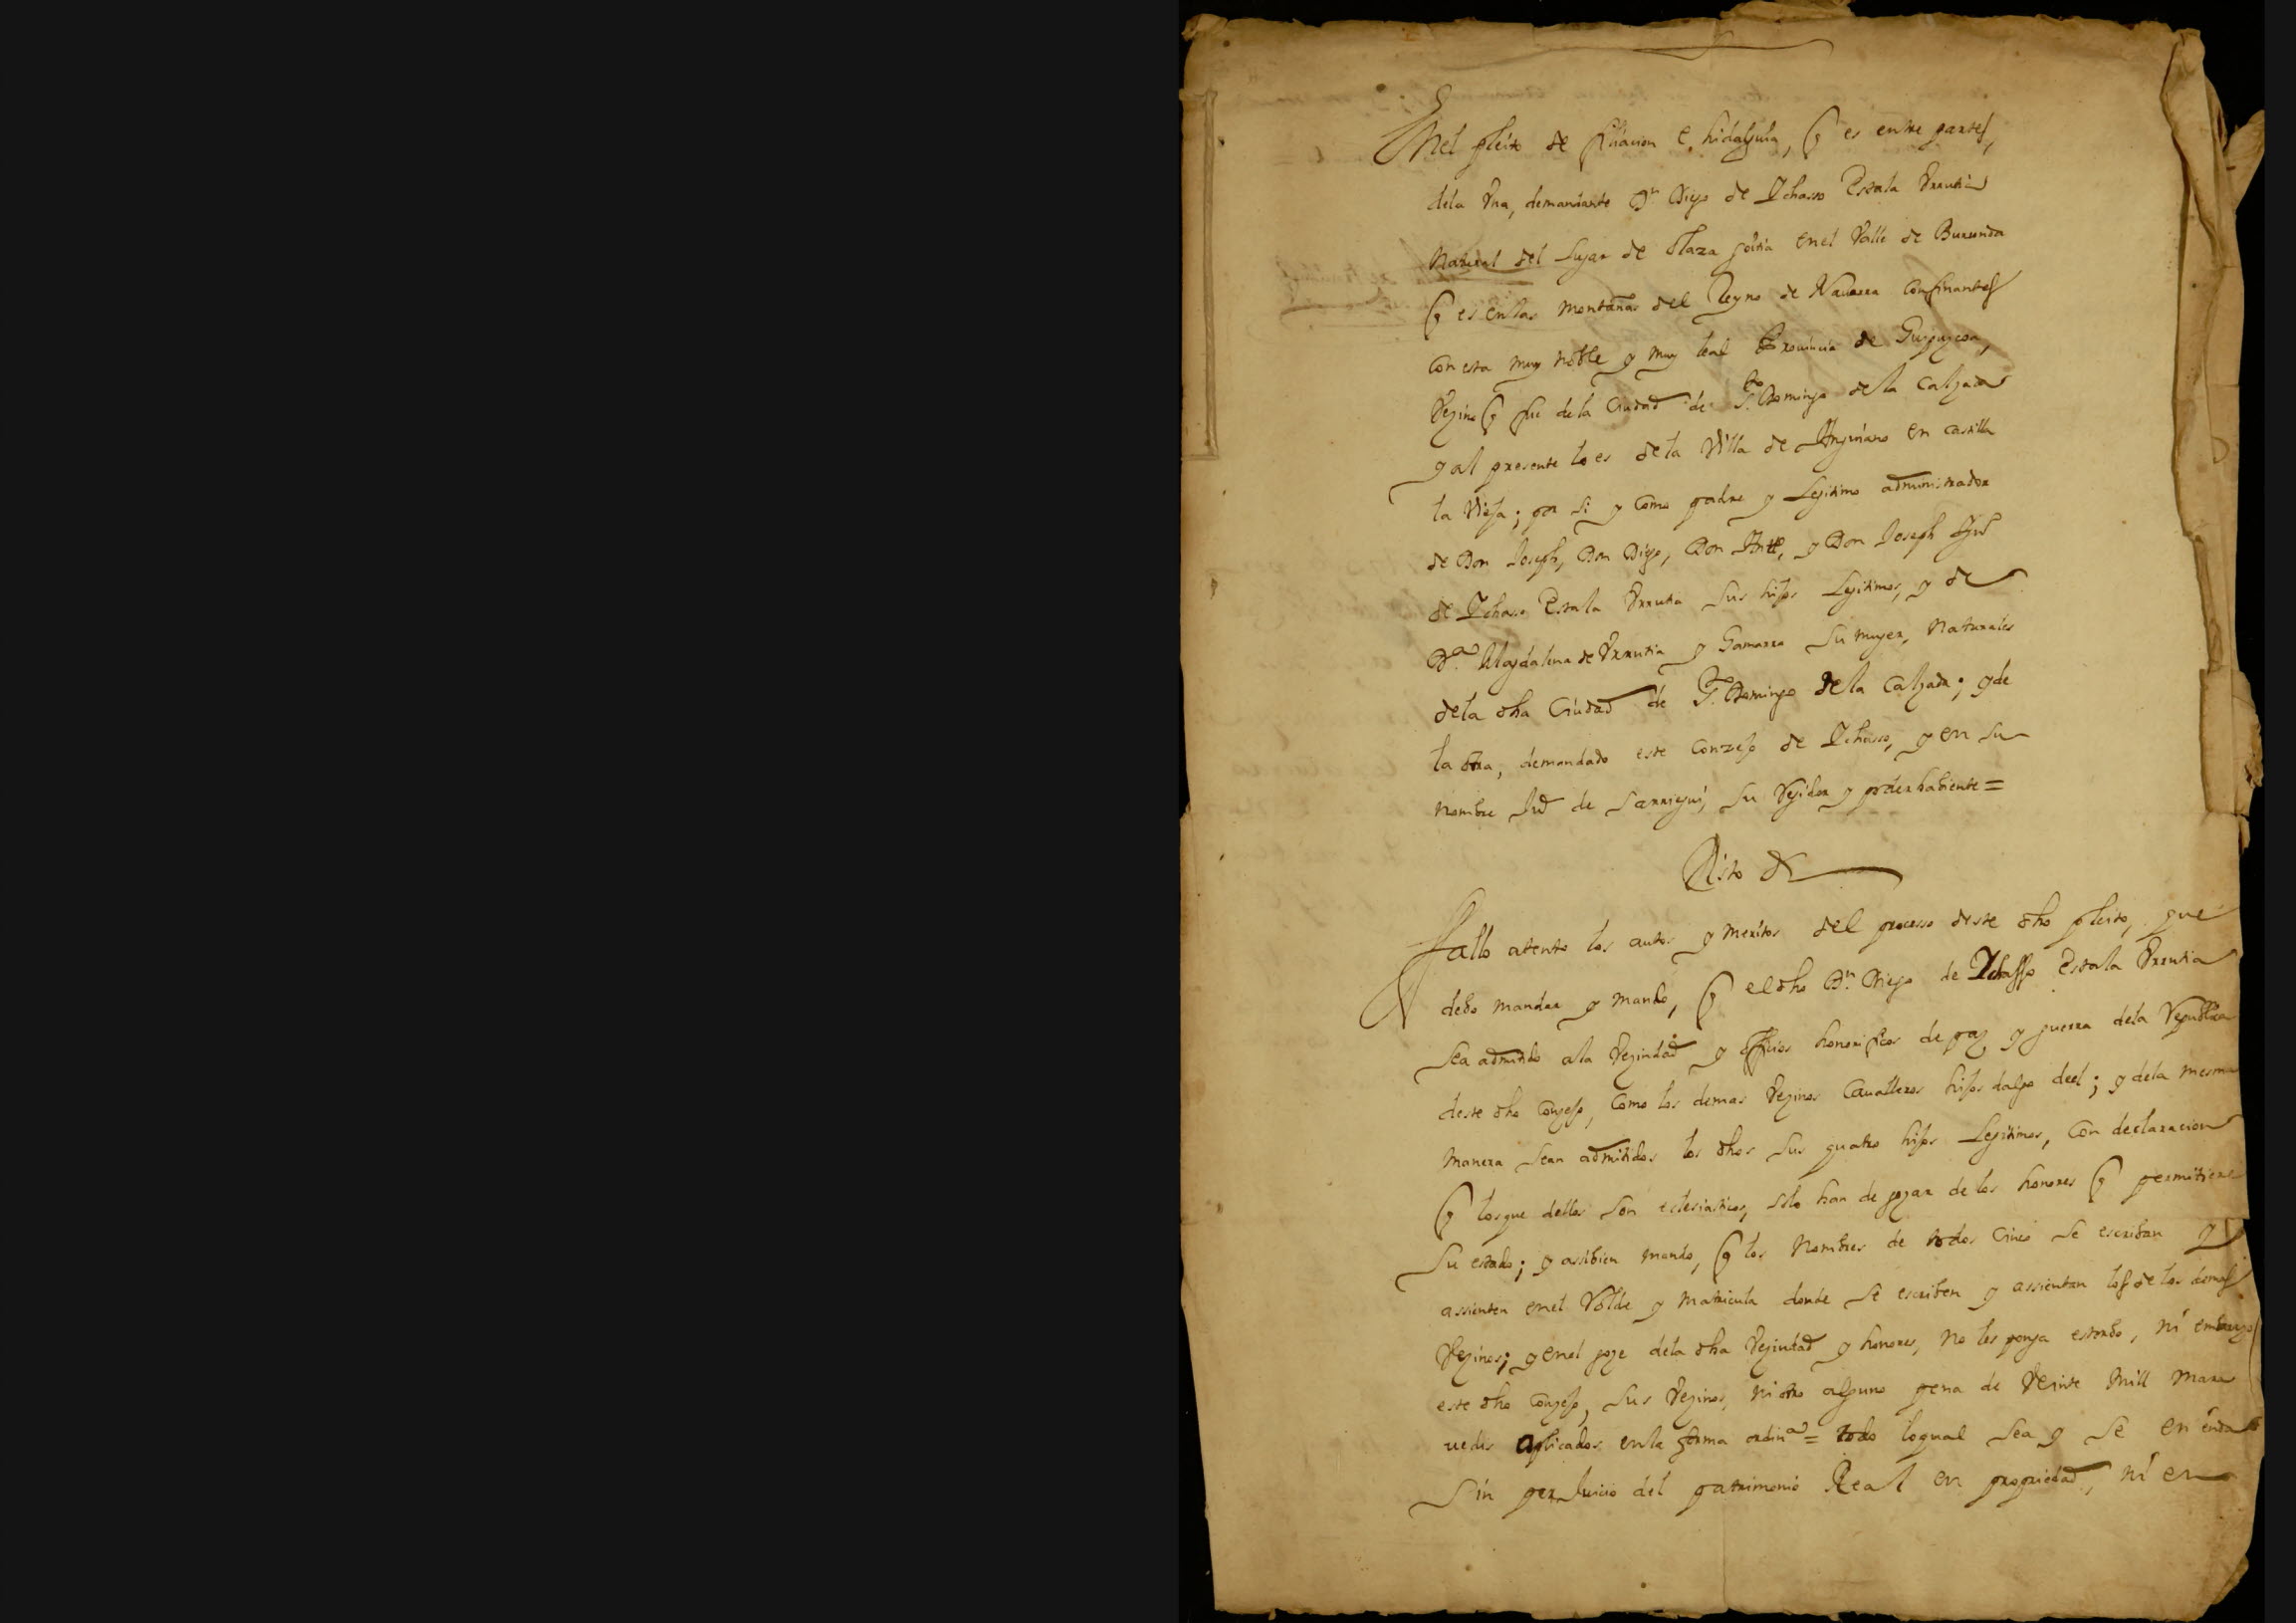 Enel pleito de filiacion e hidalguia, q es entre partes,
dela Vna, demandante Dn Diego de Ychasso Estala Vrrutia
Natural del Lugar de Olazagoitia enel Valle de Burunda
q es enlas montañas del Reyno de Nauarra confinantes
con esta muy noble y muy leal Prouincia de Guipuzcoa,
Vezino q fue dela Ciudad de Sto Domingo dela Calzada
y al presente lo es dela Villa de Anguiano en castilla
la Vieja; por si y como padre y Legitimo administrador
de Don Joseph, Don Diego, Don Antto, y Don Joseph
de Ychasso Estala Vrrutia sus hijos Legitimos, y de
Da Magdalena de Vrrutia y Gamarra su muger, Naturales
dela dha Ciudad de Sto Domingo dela Calzada; y de
la otra, demandado este Conzejo de Ychasso, y en su
nombre Jud de Larrigui, su Regidor y poderhabiente =
Visto &
Fallo atento los autos y meritos del processo deste dho pleito, que
debo mandar y mando, q el dho Dn Diego de Ychasso Estala Vrrutia
sea admitido ala Vezindad y officios honorificos de paz y guerra dela Republica
deste dho Conzejo, como los demas Vezinos Caualleros hijos dalgo deel; y dela mesma
manera sean admitidos los dhos sus quatro hijos Legitimos, con declaracion
q los que dellos son eclesiasticos, solo han de gozar de los honores q permitiere
su estado; y assibien mando, q los Nombres de todos cinco se escriban y
assienten enel Rolde y matricula donde se escriben y assientan los de los demas
Vezinos; y enel goze dela dha Vezindad y honores, no les ponga estorbo, ni embargo
este dho Conzejo, sus Vezinos, ni otro alguno pena de Veinte mill mara
uedis aplicados enla forma ordina = todo loqual sea y se entienda
sin perJuicio del patrimonio Real en propriedad, ni en